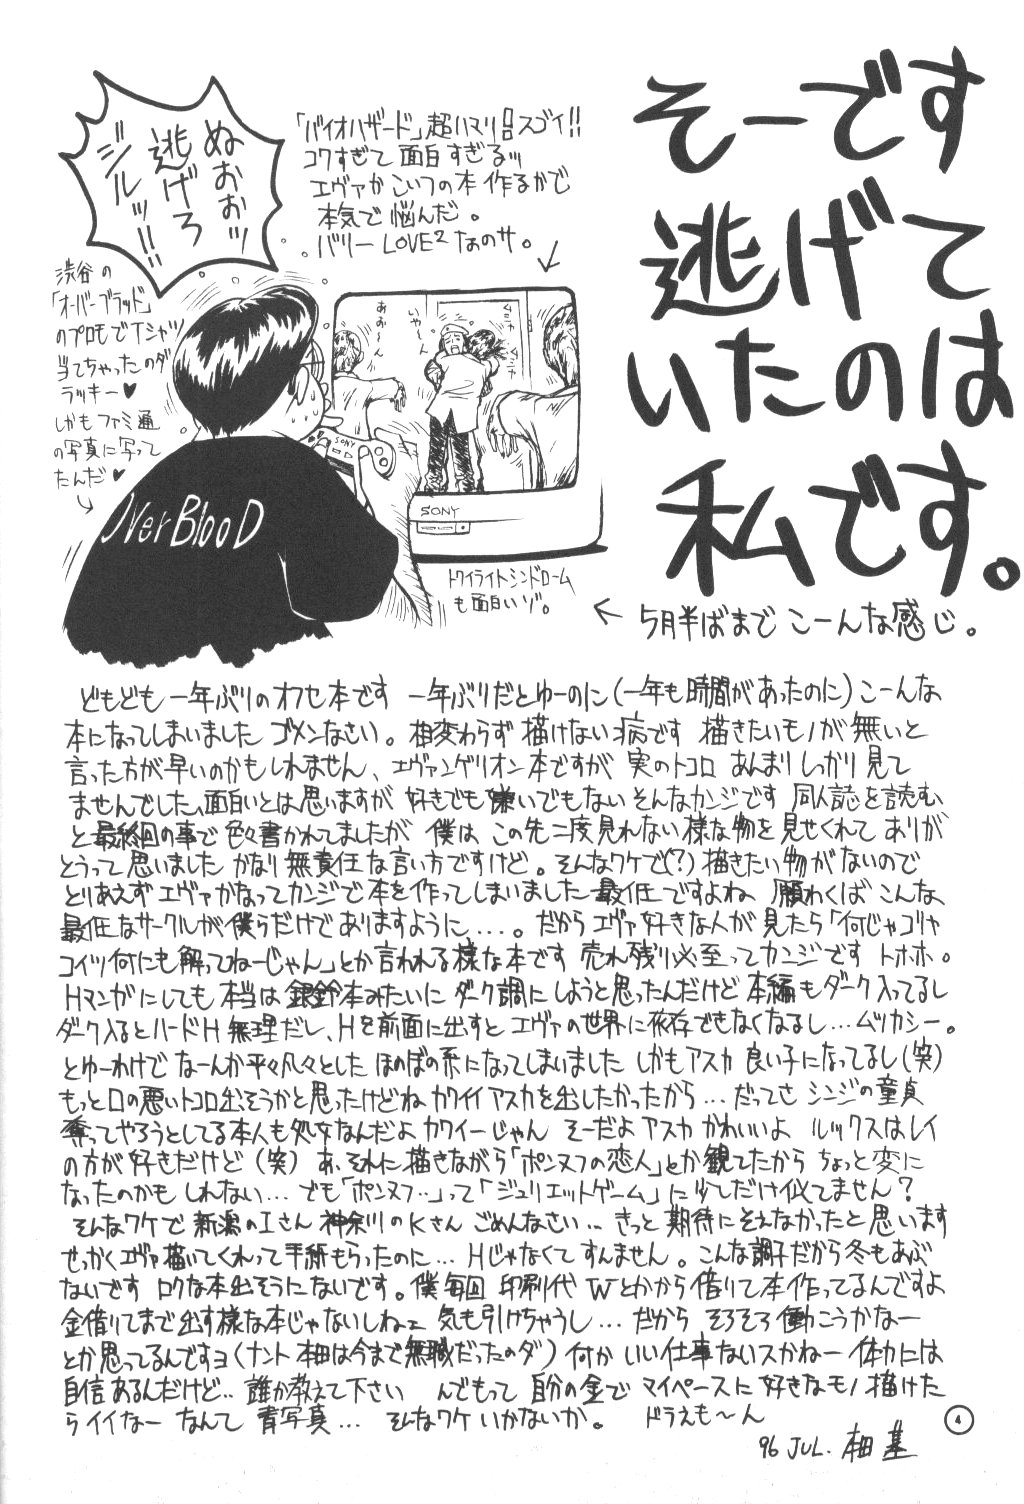 そーです
逃げて
いたのは
私です。
「バイオハザード」超ハマリ スゴイ!!
コワすぎて面白すぎるッ
エヴァかこいつの本作るかで
本気で悩んだ。
バリーLOVE2なのサ。
ぬおぉッ
逃げろ
ジルッ!!
渋谷の
「オーバーブラッド」
のプロモでTシャツ
当てちゃったのダ
ラッキー♥
しかもファミ通
の写真に写って
たんだ♥
OverBlooD
SONY
いや〜ん
あお〜ん
SONY
トワイライトシンドローム
も面白いゾ。
← 5月半ばまでこーんな感じ。
どもども一年ぶりのオフセ本です 一年ぶりだとゆーのに(一年も時間があったのに)こーんな
本になってしまいました ゴメンなさい。相変わらず描けない病です 描きたいモノが無いと
言った方が早いのかもしれません、エヴァンゲリオン本ですが 実のトコロ あんまりしっかり見て
ませんでした、面白いとは思いますが 好きでも嫌いでもないそんなカンジです 同人誌を読む
と最終回の事で色々書かれてましたが 僕は この先二度見れない様な物を見せくれて ありが
とうって思いました かなり無責任な言い方ですけど。そんなワケで(?)描きたい物がないので
とりあえずエヴァかなってカンジで本を作ってしまいました 最低ですよね 願わくば こんな
最低なサークルが僕らだけでありますように…。だからエヴァ好きな人が見たら「何じゃゴリャ
コイツ何にも解ってねーじゃん」とか言われる様な本です 売れ残り必至ってカンジです トホホ。
Hマンガにしても本当は銀鈴本みたいに ダーク調にしようと思ったんだけど 本編もダーク入ってるし
ダーク入るとハードH無理だし、Hを前面に出すと エヴァの世界に依存できなくなるし…ムツカシー。
とゆーわけで なーんか平々凡々とした ほのぼの系になってしまいました しかもアスカ 良い子になってるし(笑)
もっと口の悪いトコロ出そうかと思ったけどね カワイイアスカを出したかったから…だってさ シンジの童貞
奪ってやろうとしてる本人も処女なんだよ カワイーじゃん そーだよ アスカ かわいいよ ルックスはレイ
の方が好きだけど(笑) あ、それに描きながら「ポンヌフの恋人」とか観てたから ちょっと変に
なったのかも しれない…でも「ポンヌフ‥」って「ジュリエットゲーム」に少しだけ似てません?
そんなワケで 新潟のIさん 神奈川のKさん ごめんなさい‥きっと期待にそえなかったと思います
せっかくエヴァ描いてくれって手紙もらったのに…Hじゃなくてすんません。こんな調子だから冬もあぶ
ないです ロクな本出そうにないです。僕毎回 印刷代 Wとかから借りて本作ってるんですよ
金借りてまで出す様な本じゃないしねェ 気も引けちゃうし…だから そろそろ働こうかなー
とか思ってるんですヨ(ナント 柚は今まで無職だったのダ)何か いい仕事ないスかねー 体力には
自信あるんだけど‥誰か教えて下さい んでもって 自分の金で マイペースに好きなモノ描けた
らイイなー なんて 青写真… そんなワケいかないか。 ドラえも〜ん
4
96 JUL.